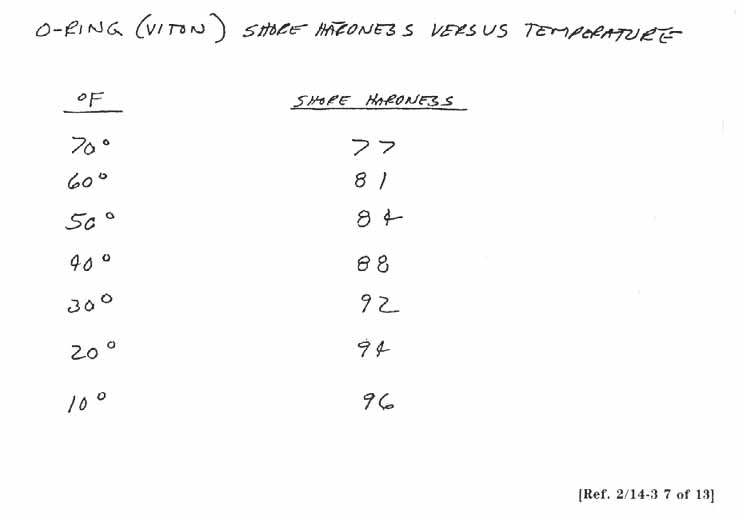 O-RING (VITON) SHORE HARDNESS VERSUS TEMPERATURE
°F SHORE HARDNESS
70° 77
60° 81
50° 84
40° 88
30° 92
20° 94
10° 96
[Ref. 2/14-3 7 of 13]